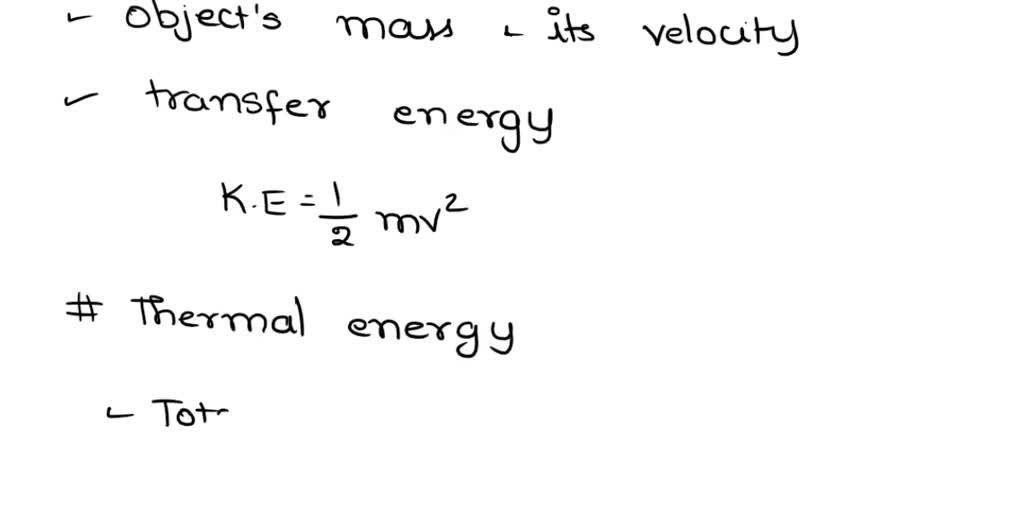 ✓ object's mass ✓ its velocity
✓ transfer energy
K.E = 1/2 mv²
# Thermal energy
✓ Tot